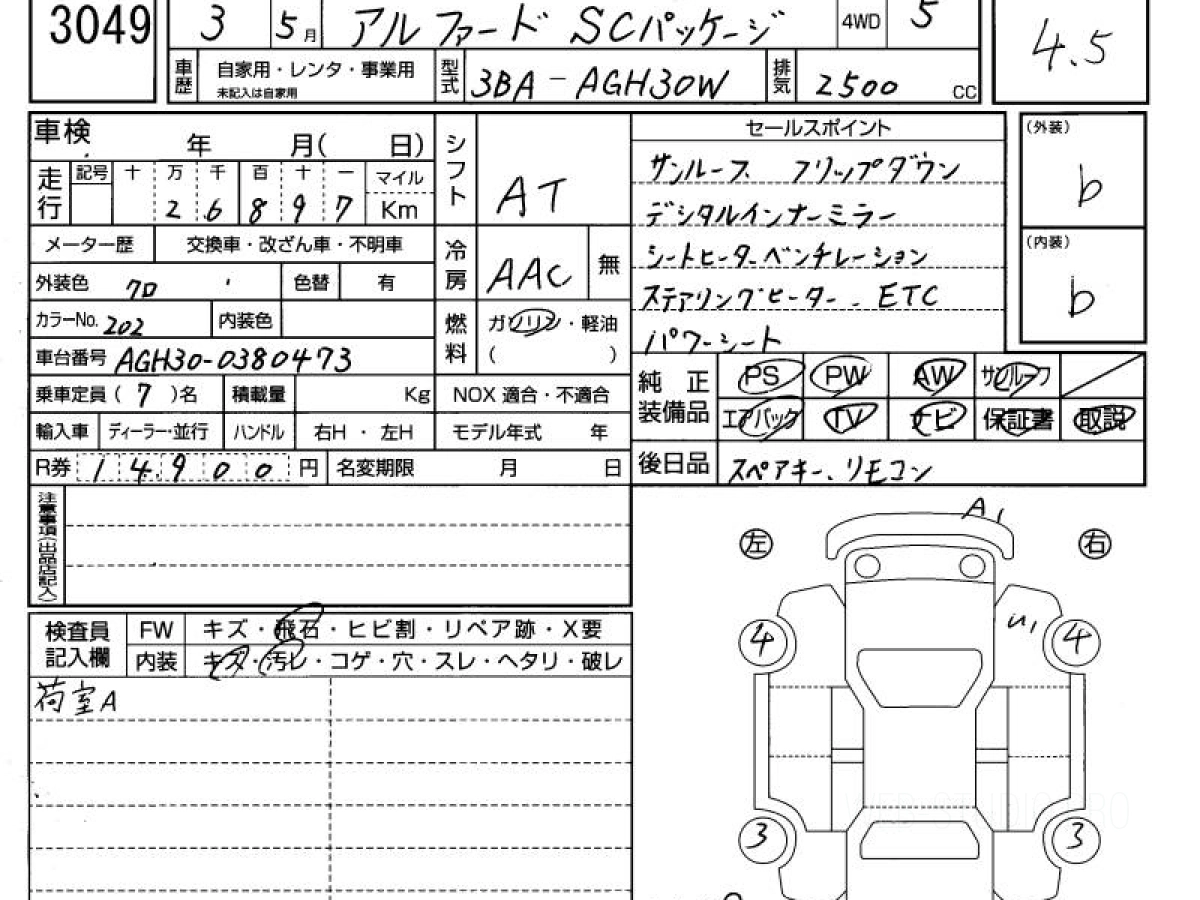 3049 3 5月 アルファード SCパッケージ 4WD 5 4.5
車歴 自家用・レンタ・事業用 未記入は自家用 型式 3BA-AGH30W 排気 2500 CC
車検 年 月( 日) シフト AT
走行 記号 十 万 千 百 十 一 マイル
2 6 8 9 7 Km
メーター歴 交換車・改ざん車・不明車 冷房 AAC 無
外装色 クロ 色替 有
カラーNo. 202 内装色 燃料 ガソリン・軽油 ( )
車台番号 AGH30-0380473
乗車定員(7)名 積載量 Kg NOX 適合・不適合
輸入車 ディーラー・並行 ハンドル 右H・左H モデル年式 年
R券 14900円 名変期限 月 日
注意事項(出品店記入)
セールスポイント
サンルーフ フリップダウン
デジタルインナーミラー
シートヒーター ベンチレーション
ステアリングヒーター. ETC
パワーシート
(外装) b
(内装) b
純正装備品 PS PW AW サンルーフ
エアバック TV ナビ 保証書 取説
後日品 スペアキー、リモコン
検査員記入欄 FW キズ・飛石・ヒビ割・リペア跡・X要
内装 キズ・汚レ・コゲ・穴・スレ・ヘタリ・破レ
荷室A
A1
左 右
4 4
3 3